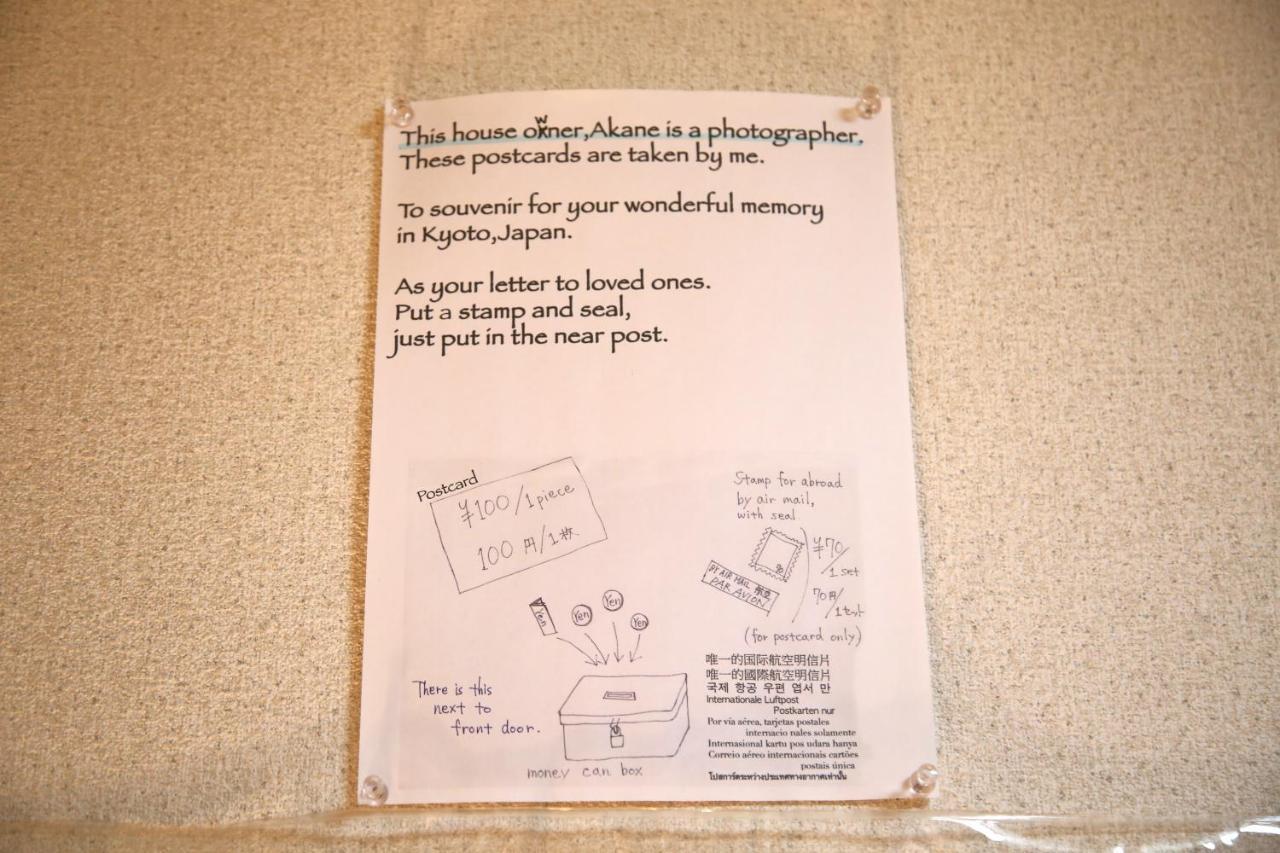 This house owner,Akane is a photographer.
These postcards are taken by me.
To souvenir for your wonderful memory
in Kyoto,Japan.
As your letter to loved ones.
Put a stamp and seal,
just put in the near post.
Postcard
¥100/1piece
100円/1枚
Stamp for abroad
by air mail,
with seal.
90
BY AIR MAIL 航空
PAR AVION
¥70/1 set
70円/1セット
(for postcard only)
Yen
Yen
Yen
Yen
There is this
next to
front door.
money can box
唯一的国际航空明信片
唯一的國際航空明信片
국제 항공 우편 엽서 만
Internationale Luftpost
Postkarten nur
Por vía aérea, tarjetas postales
internacio nales solamente
Internasional kartu pos udara hanya
Correio aéreo internacionais cartões
postais única
โปสการ์ดระหว่างประเทศทางอากาศเท่านั้น